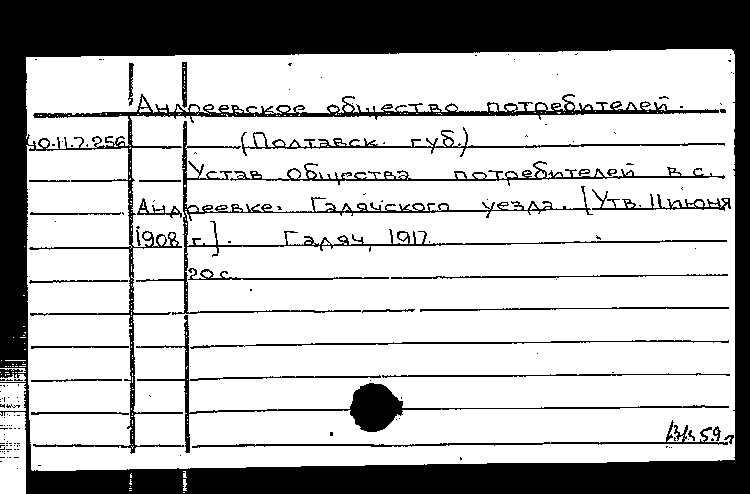 Андреевское общество потребителей.
40.11.7.256
(Полтавск. губ.)
Устав Общества потребителей в с.
Андреевке, Гадячского уезда. [Утв. 11 июня
1908 г.]. Гадяч, 1917.
20 с.
59